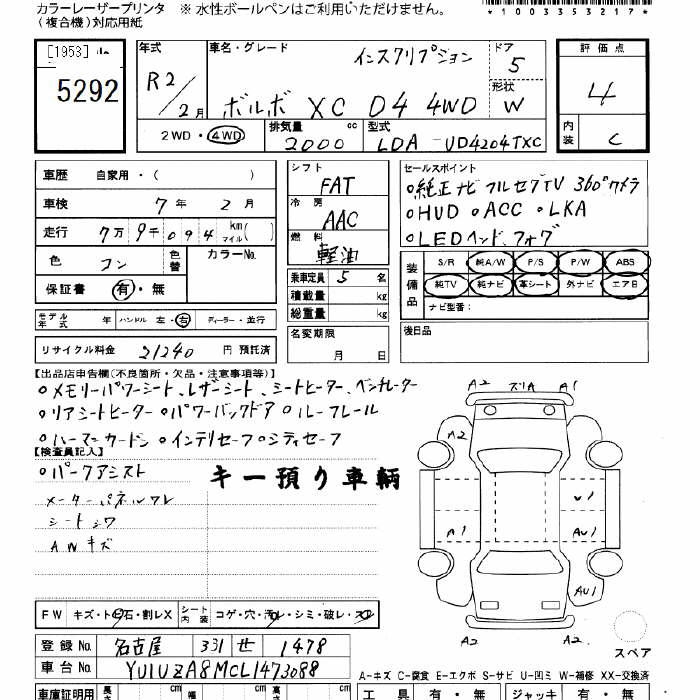 カラーレーザープリンタ ※ 水性ボールペンはご利用いただけません。
（複合機）対応用紙
*1003353217*
[1953]
5292
年式 R2/2月
車名・グレード インスクリプション
ボルボ XC D4 4WD
ドア 5
形状 W
評価点 4
内装 C
2WD・4WD 排気量 2000 cc 型式 LDA-UD4204TXC
車歴 自家用・( )
車検 7年 2月
走行 7万9千094 km マイル( )
色 コン 色替 カラーNo.
保証書 有・無
モデル年式 年 ハンドル 左・右 ディーラー・並行
リサイクル料金 21240 円 預託済
シフト FAT
冷房 AAC
燃料 軽油
乗車定員 5 名
積載量 kg
総重量 kg
名変期限
月 日
セールスポイント
○純正ナビ フルセグTV 360°カメラ
○HUD ○ACC ○LKA
○LEDヘッド、フォグ
装備品 S/R 純A/W P/S P/W ABS
純TV 純ナビ 革シート 外ナビ エアB
ナビ型番：
後日品
【出品店申告欄(不良箇所・欠品・注意事項等)】
○メモリーパワーシート、レザーシート、シートヒーター、ベンチレーター
○リアシートヒーター ○パワーバックドア ○ルーフレール
○ハーマンカードン ○インテリセーフ ○シティセーフ
【検査員記入】
○パークアシスト
キー預り車輌
メーターパネルワレ
シートシワ
AWキズ
A2 ズリA A1
A2
U1
A1 AU1
AU1
A2 A2
スペア
FW キズ・ト石・割レX シート内装 コゲ・穴・汚レ・シミ・破レ・スレ
登録No. 名古屋 331 せ 1478
車台No. YU1UZA8MCL1473088
A-キズ C-腐食 E-エクボ S-サビ U-凹ミ W-補修 XX-交換済
車庫証明用 長さ cm 幅 cm 高さ cm
工具 有・無 ジャッキ 有・無